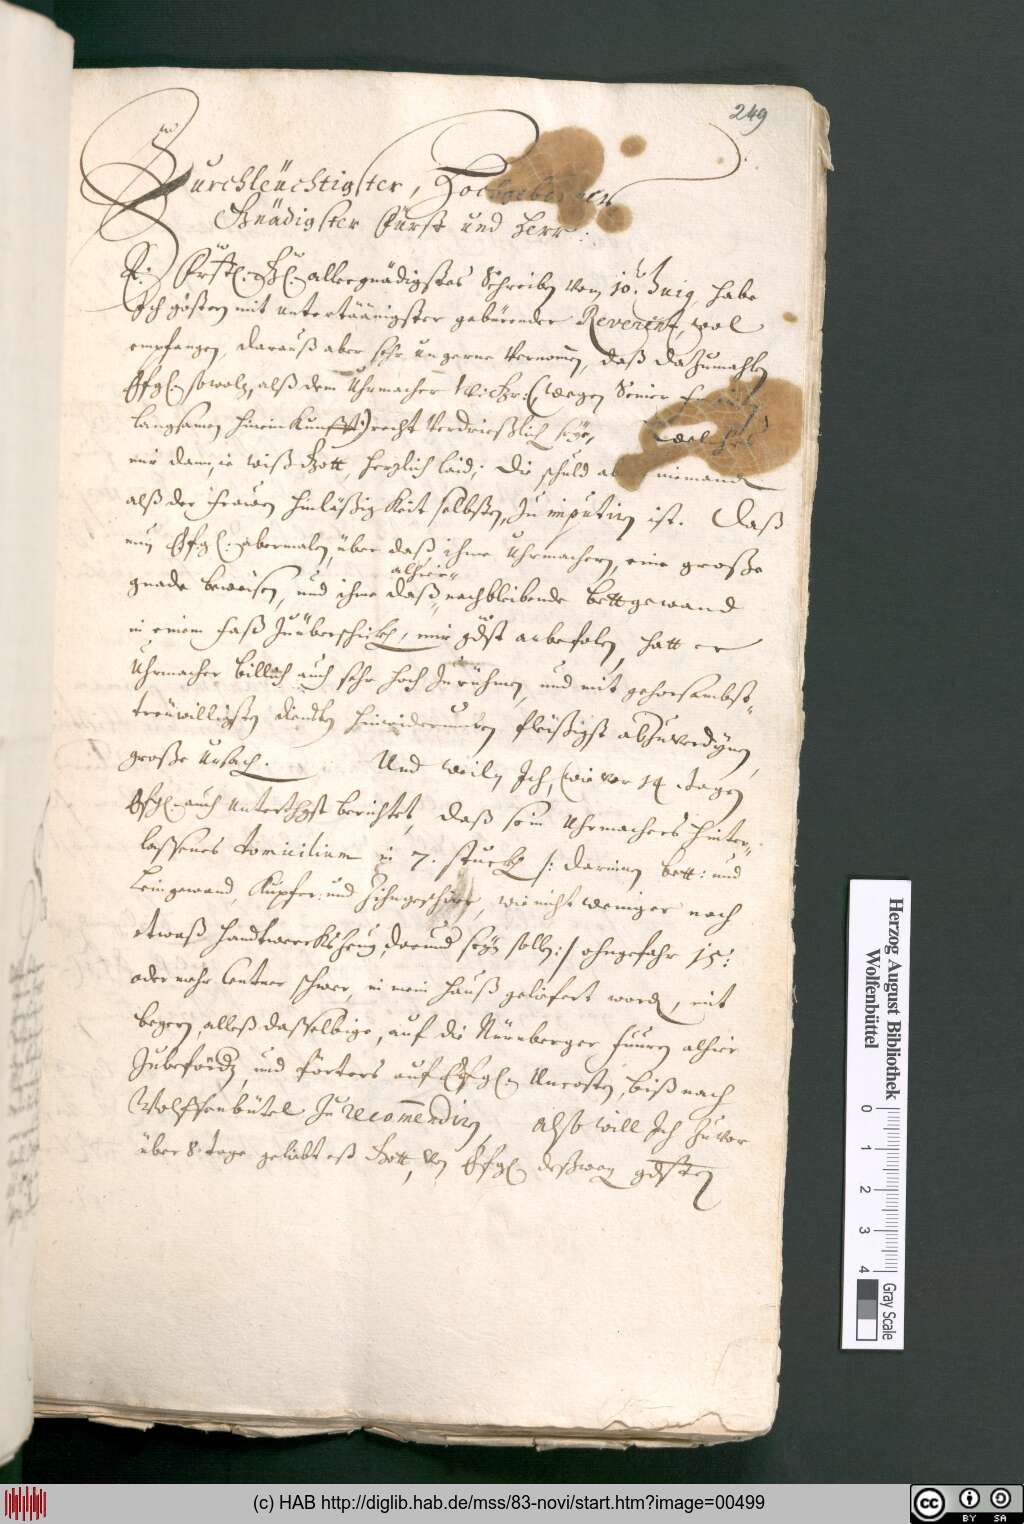 249
Durchleüchtigster, Hochgeborner
Gnädigster Fürst und Herr:
E: Fürstl: Gl: allergnädigstes Schreiben vom 10. Junij habe
Ich gestern mit untertäänigster gebürender Reverentz wol
empfangen, darauß aber sehr ungerne vernom̄en, daß dazumahlen
Efgl. sowolz, alß dem Uhrmacher wegen Seiner
langsamen hineinkunfft) recht verdrießlich seÿe, welches
mir dann, ie wiß Gott, herzlich laid; die schuld aber niemand
alß der frawen hinläßigkeit selbsten, zu imputirn ist. Daß
nun Efgl. abermalen, über daß, ihme Uhrmachern, eine große
alhier
gnade beweisen, und ihme daß nachbleibende bettgewand
in einem faß zuüberschickh, mir gdst anbefolen, hatt er
Uhrmacher billich auch sehr hoch zurühmen, und mit gehorsambst
treüwilligsten diensten hinwiderumben fleißigst abzuverdienen,
große ursach. Und weiln Ich, wie vor 14 tagen
Efgl. auch unterthgst berichtet, daß sein Uhrmachers hinter-
lassenes Domicilium in 7. stuckh /: darinnen bett: und
Leingewand, Kupfer: und Zihngeschirr, wie nicht weniger noch
etwaß handtwerckszeug darund seÿn solle :/ ohngefahr 15:
oder mehr Centner schwer, in mein hauß gelifert word, mit
begern, alleß dasselbige, auf die Nürnberger fuuren alhier
Zubefördn, und förters auf Efgl. Uncosten, biß nach
Wolffenbütel zu recom̄endirn also will Ich zuvor
über 8. tage geliebt eß Gott, von Efgl. deßweg gdsten
Herzog August Bibliothek
Wolfenbüttel
0 1 2 3 4
Gray Scale
(c) HAB http://diglib.hab.de/mss/83-novi/start.htm?image=00499
cc BY SA